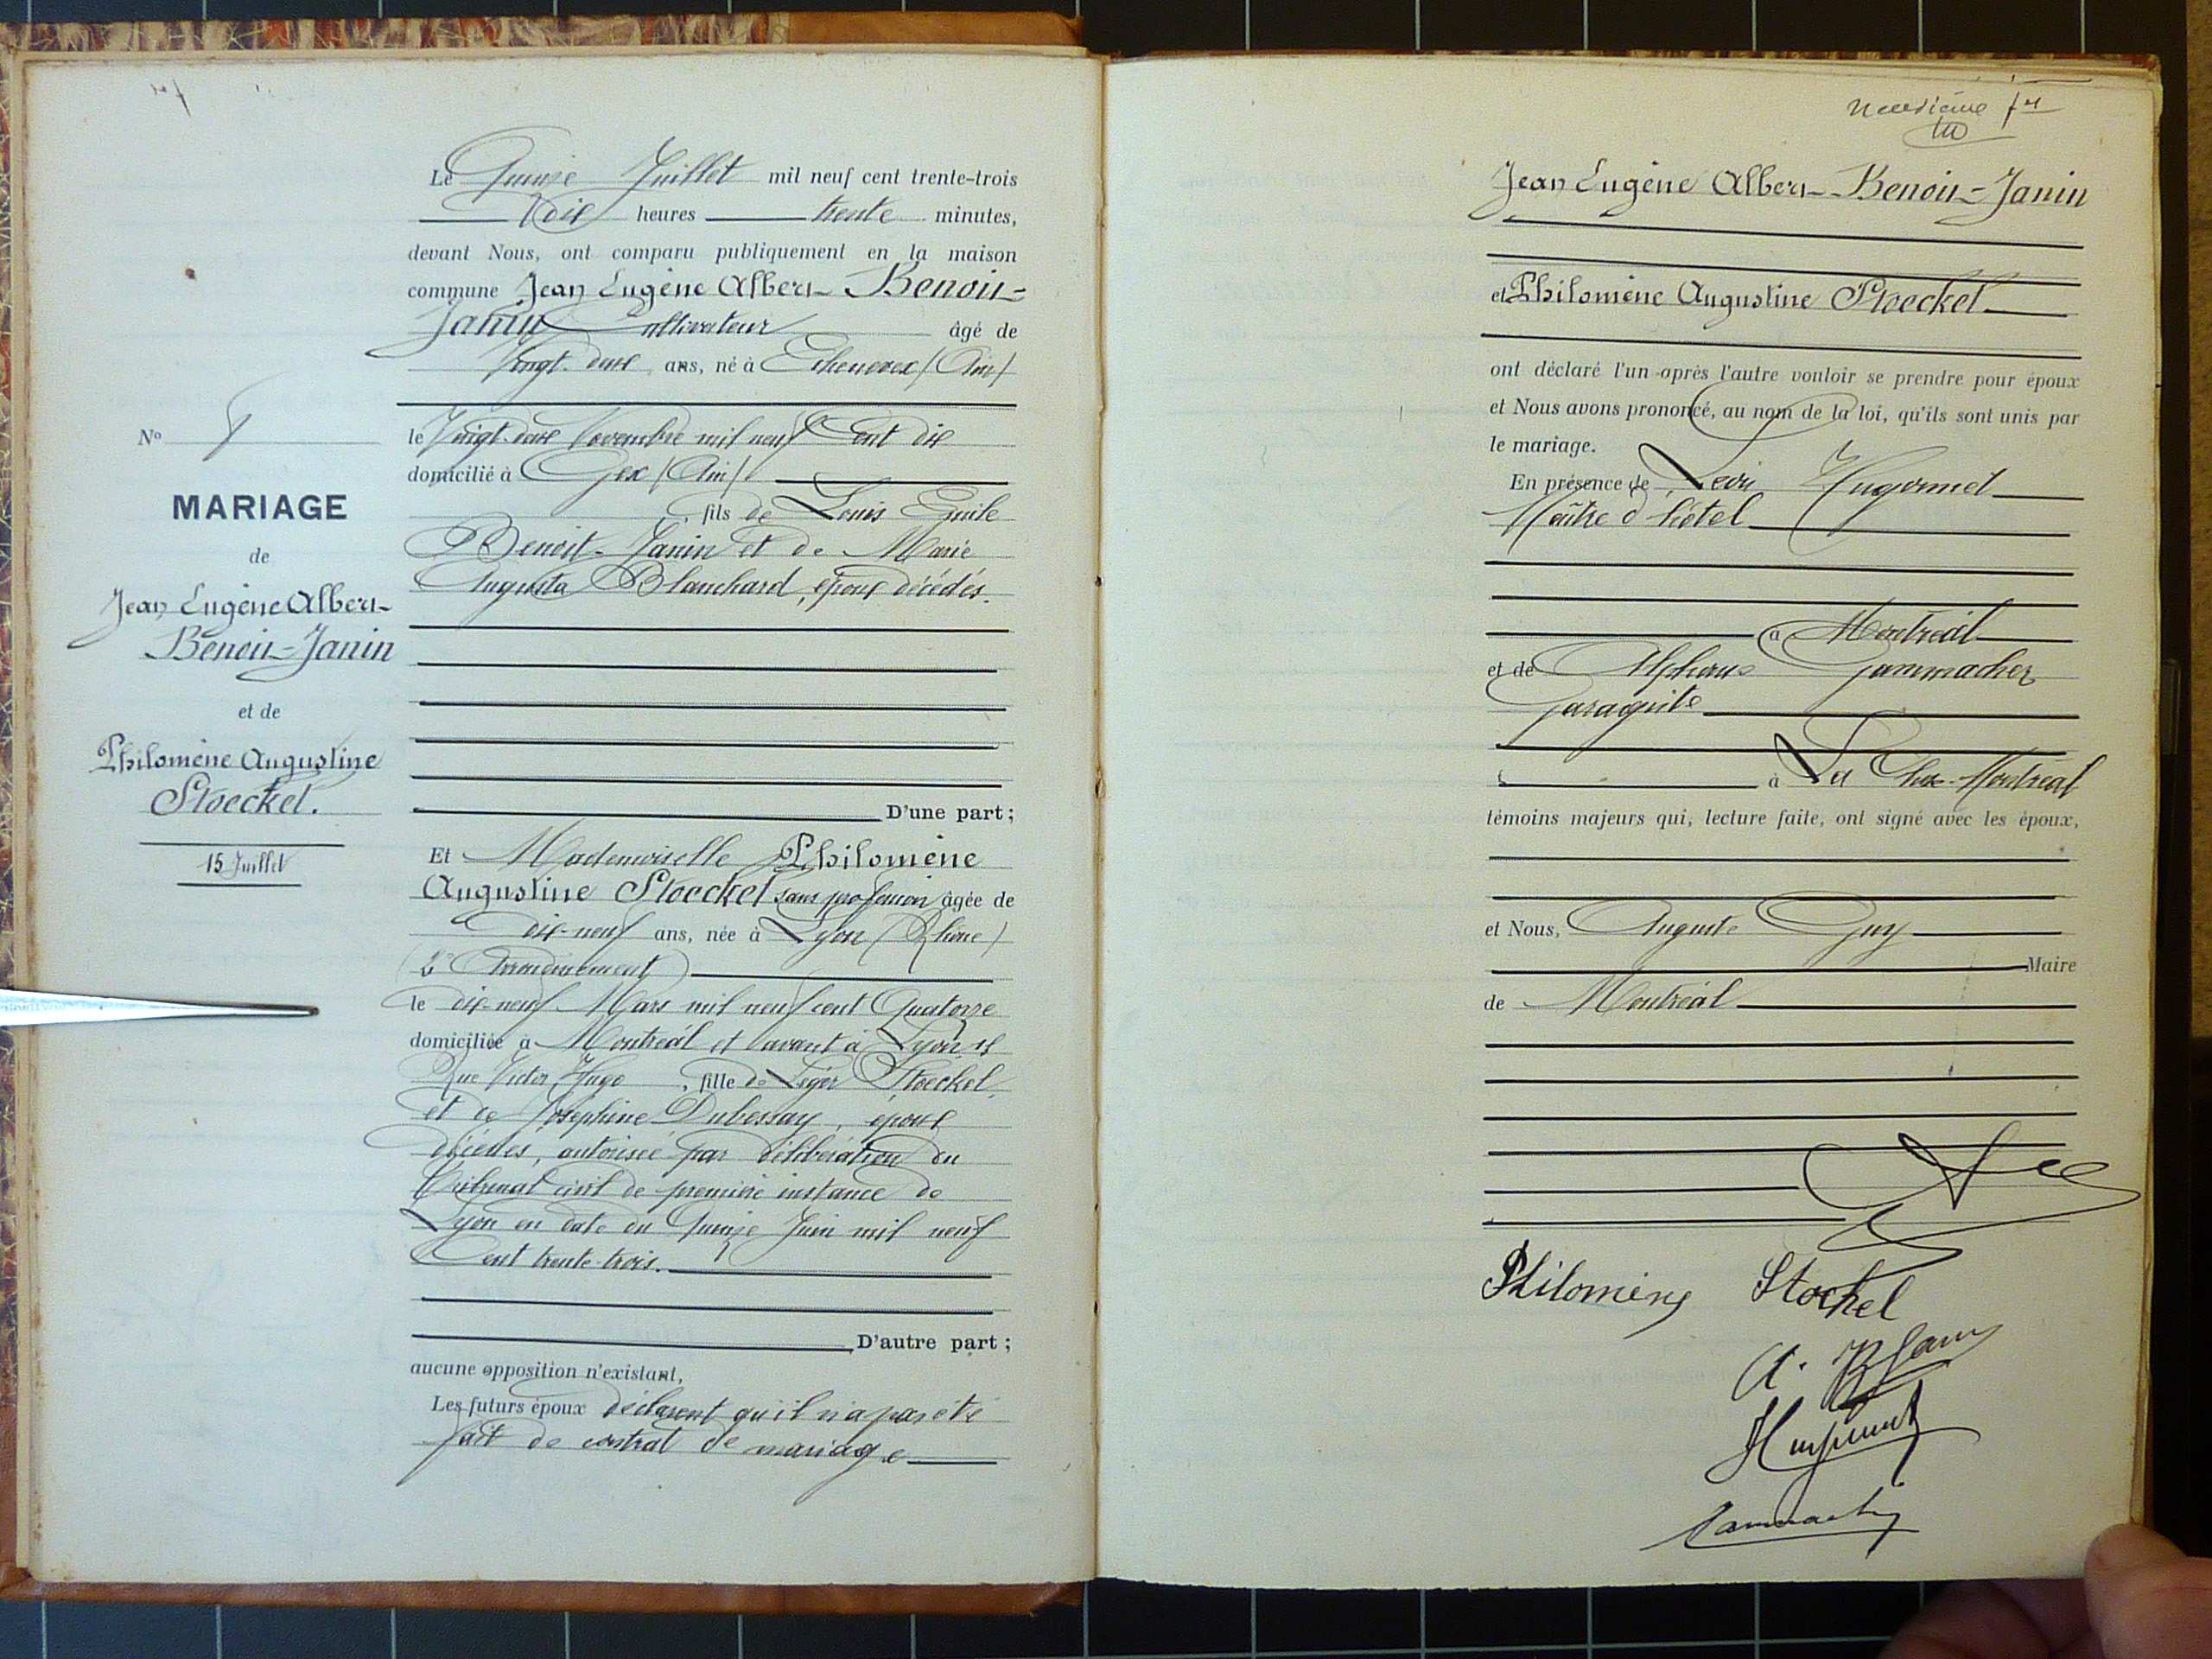 Le Quinze Juillet mil neuf cent trente-trois
Dix heures trente minutes,
devant Nous, ont comparu publiquement en la maison
commune Jean Eugène Albert Benoit-
Janin cultivateur âgé de
vingt-deux ans, né à Echenevex (Ain)
le vingt-deux Novembre mil neuf Cent dix
domicilié à Gex (Ain)
, fils de Louis Emile
Benoit-Janin et de Marie
Augusta Blanchard, époux décédés.
D'une part ;
Nº
MARIAGE
de
Jean Eugène Albert
Benoit-Janin
et de
Philomène Augustine
Stoeckel.
15 Juillet
Et Mademoiselle Philomène
Augustine Stoeckel sans profession âgée de
dix-neuf ans, née à Lyon (Rhône)
Arrondissement
le dix-neuf Mars mil neuf cent Quatorze
domiciliée à Montréal et avant à Lyon
Rue Victor Hugo, fille de Léger Stoeckel
et de Joséphine Dubessay, époux
décédés, autorisée par délibération du
Tribunal civil de première instance de
Lyon en date du quinze Juin mil neuf
Cent trente-trois.
D'autre part ;
aucune opposition n'existant,
Les futurs époux déclarent qu'il n'a pas été
fait de contrat de mariage
Jean Eugène Albert Benoit-Janin
et Philomène Augustine Stoeckel
ont déclaré l'un après l'autre vouloir se prendre pour époux
et Nous avons prononcé, au nom de la loi, qu'ils sont unis par
le mariage.
En présence de Léon Hugonnet
Maître d'hôtel
à Montréal
et de Alphonse Gammacher
Garagiste
à La Cluse-Montréal
témoins majeurs qui, lecture faite, ont signé avec les époux,
et Nous, Auguste Guy
Maire
de Montréal
Philomène Stockel